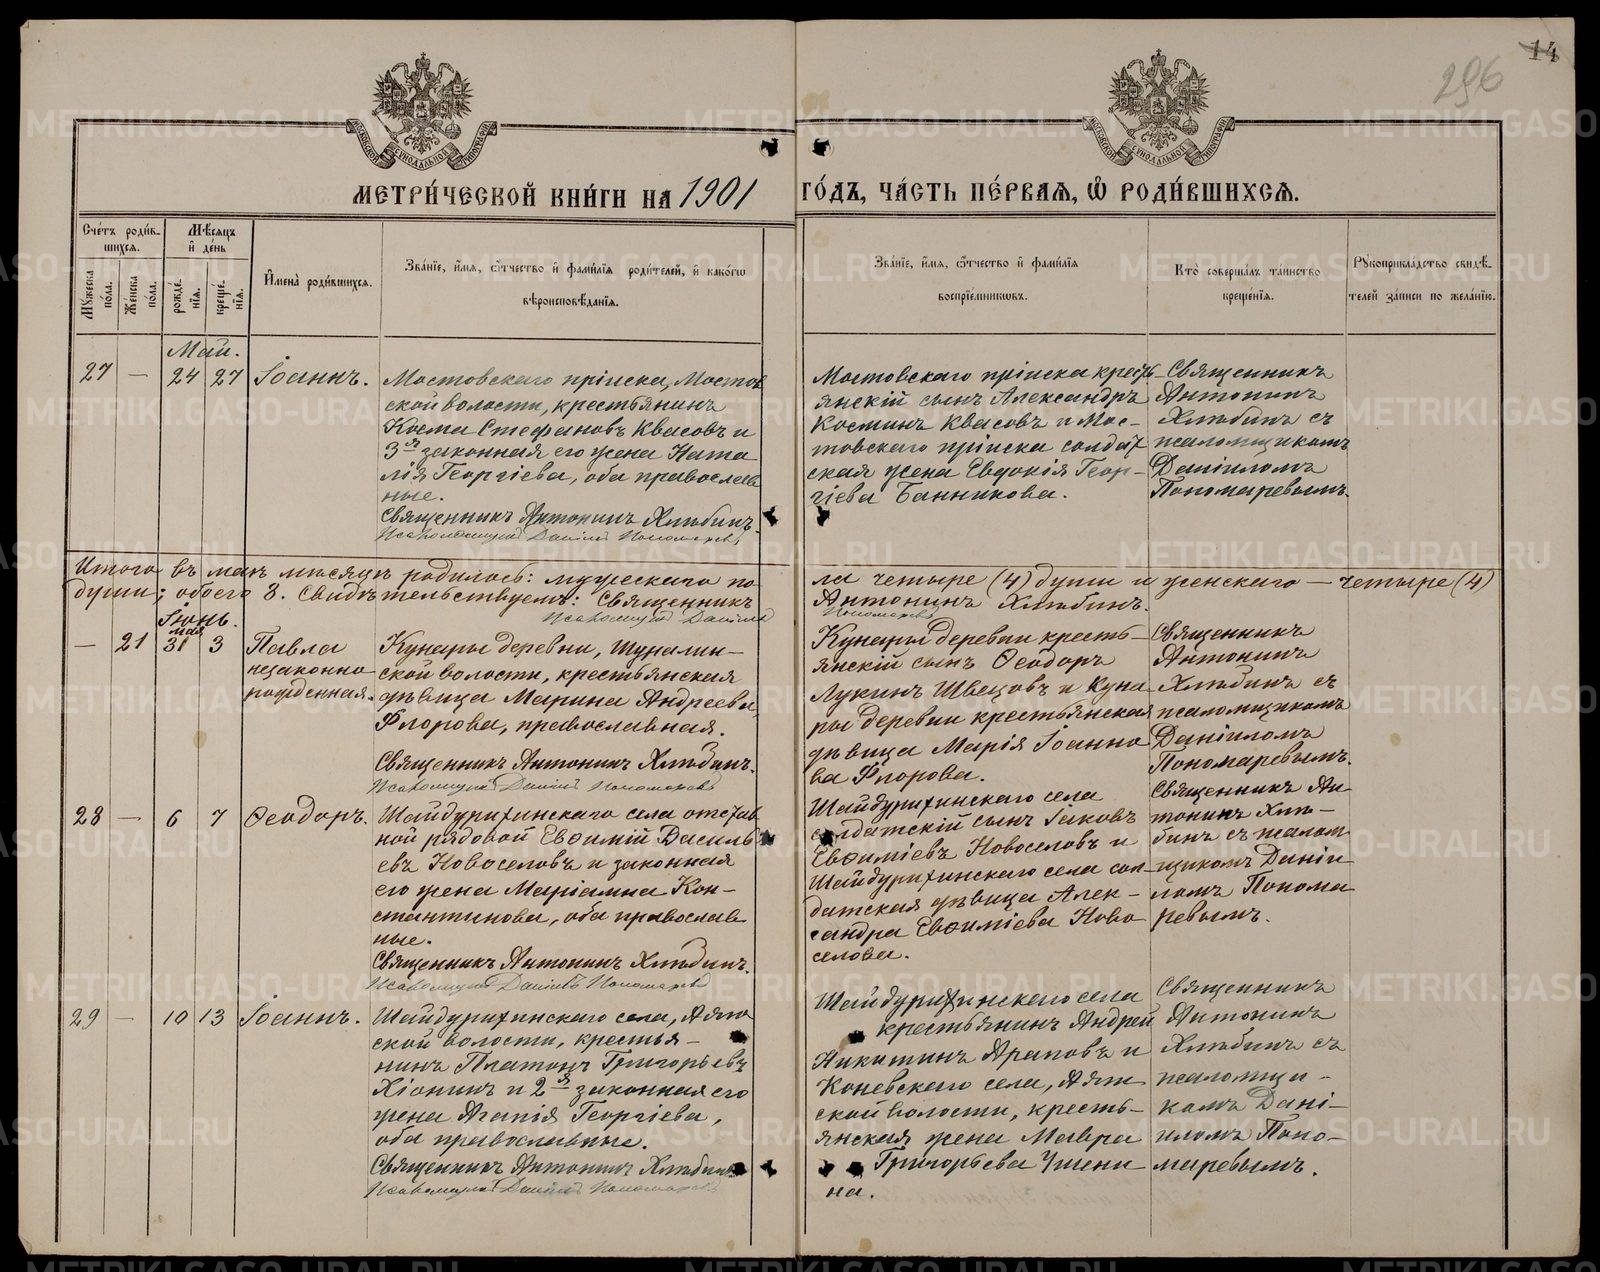 14
296
МЕТРИ́ЧЕСКОЙ КНИ́ГИ НА 1901
ГО́ДЪ, ЧА́СТЬ ПЕ́РВАѦ, Ѡ҆ РОДИ́ВШИХСѦ.
Сче́тъ роди́в-
шихсѧ.
Мꙋ́жеска по́ла.
Же́нска по́ла.
Мѣ́сѧцъ
и҆ де́нь
рожде́нїѧ.
креще́нїѧ.
И҆мена̀ роди́вшихсѧ.
Зва́нїе, и҆́мѧ, ѻ҆́тчество и҆ фами́лїѧ роди́телей, и҆ како́гѡ
вѣроисповѣ́данїѧ.
Зва́нїе, и҆́мѧ, ѻ҆́тчество и҆ фами́лїѧ
воспрїе́мникѡвъ.
Кто̀ соверша́лъ та́инство
креще́нїѧ.
Рꙋкоприкла́дство свидѣ́-
телей за́писи по жела́нїю.
Май.
27 — 24 27 Іоаннъ.
Мостовскаго пріиска, Мостов
ской волости, крестьянинъ
Косма Стефановъ Квасовъ и
3я законная его жена Ната
лія Георгіева, оба православ
ные.
Священникъ Антонинъ Хлѣбинъ.
Псаломщикъ Даніилъ Пономаревъ
Мостовскаго пріиска кресть-
янскій сынъ Александръ
Косминъ Квасовъ и Мос-
товскаго пріиска солдат
ская жена Евдокія Геор-
гіева Банникова.
Священникъ
Антонинъ
Хлѣбинъ съ
псаломщикомъ
Даніиломъ
Пономаревымъ.
Итого въ маѣ мѣсяцѣ родилось: мужескаго по
ла четыре (4) души и женскаго — четыре (4)
души; обоего 8. Свидѣтельствуемъ: Священникъ
Антонинъ Хлѣбинъ.
Псаломщикъ Даніилъ
Пономаревъ
Іюнь.
мая
— 21 31 3 Павла
незаконно
рожденная.
Кунары деревни, Шуралин-
ской волости, крестьянская
дѣвица Марина Андреева
Флорова, православная.
Священникъ Антонинъ Хлѣбинъ.
Псаломщикъ Даніилъ Пономаревъ
Кунары деревни кресть-
янскій сынъ Ѳеодоръ
Лукинъ Швецовъ и Куна
ры деревни крестьянская
дѣвица Марія Іоанно
ва Флорова.
Священникъ
Антонинъ
Хлѣбинъ съ
псаломщикомъ
Даніиломъ
Пономаревымъ.
28 — 6 7 Ѳеодоръ.
Шайдурихинскаго села отстав
ной рядовой Евѳимій Василь
евъ Новоселовъ и законная
его жена Маріамна Кон-
стантинова, оба православ
ные.
Священникъ Антонинъ Хлѣбинъ.
Псаломщикъ Даніилъ Пономаревъ
Шайдурихинскаго села
солдатскій сынъ Іаковъ
Евѳиміевъ Новоселовъ и
Шайдурихинскаго села сол
датская дѣвица Алек-
сандра Евѳиміева Ново
селова.
Священникъ Ан
тонинъ Хлѣ-
бинъ съ псалом
щикомъ Даніи
ломъ Понома
ревымъ.
29 — 10 13 Іоаннъ.
Шайдурихинскаго села, Аят
ской волости, крестья-
нинъ Платонъ Григорьевъ
Хіонинъ и 2я законная его
жена Агапія Георгіева,
оба православные.
Священникъ Антонинъ Хлѣбинъ
Псаломщикъ Даніилъ Пономаревъ
Шайдурихинскаго села
крестьянинъ Андрей
Никитинъ Араповъ и
Коневскаго села, Аят
ской волости, кресть-
янская жена Мавра
Григорьева Ушени
на.
Священникъ
Антонинъ
Хлѣбинъ съ
псаломщи-
комъ Дані-
иломъ Поно-
маревымъ.